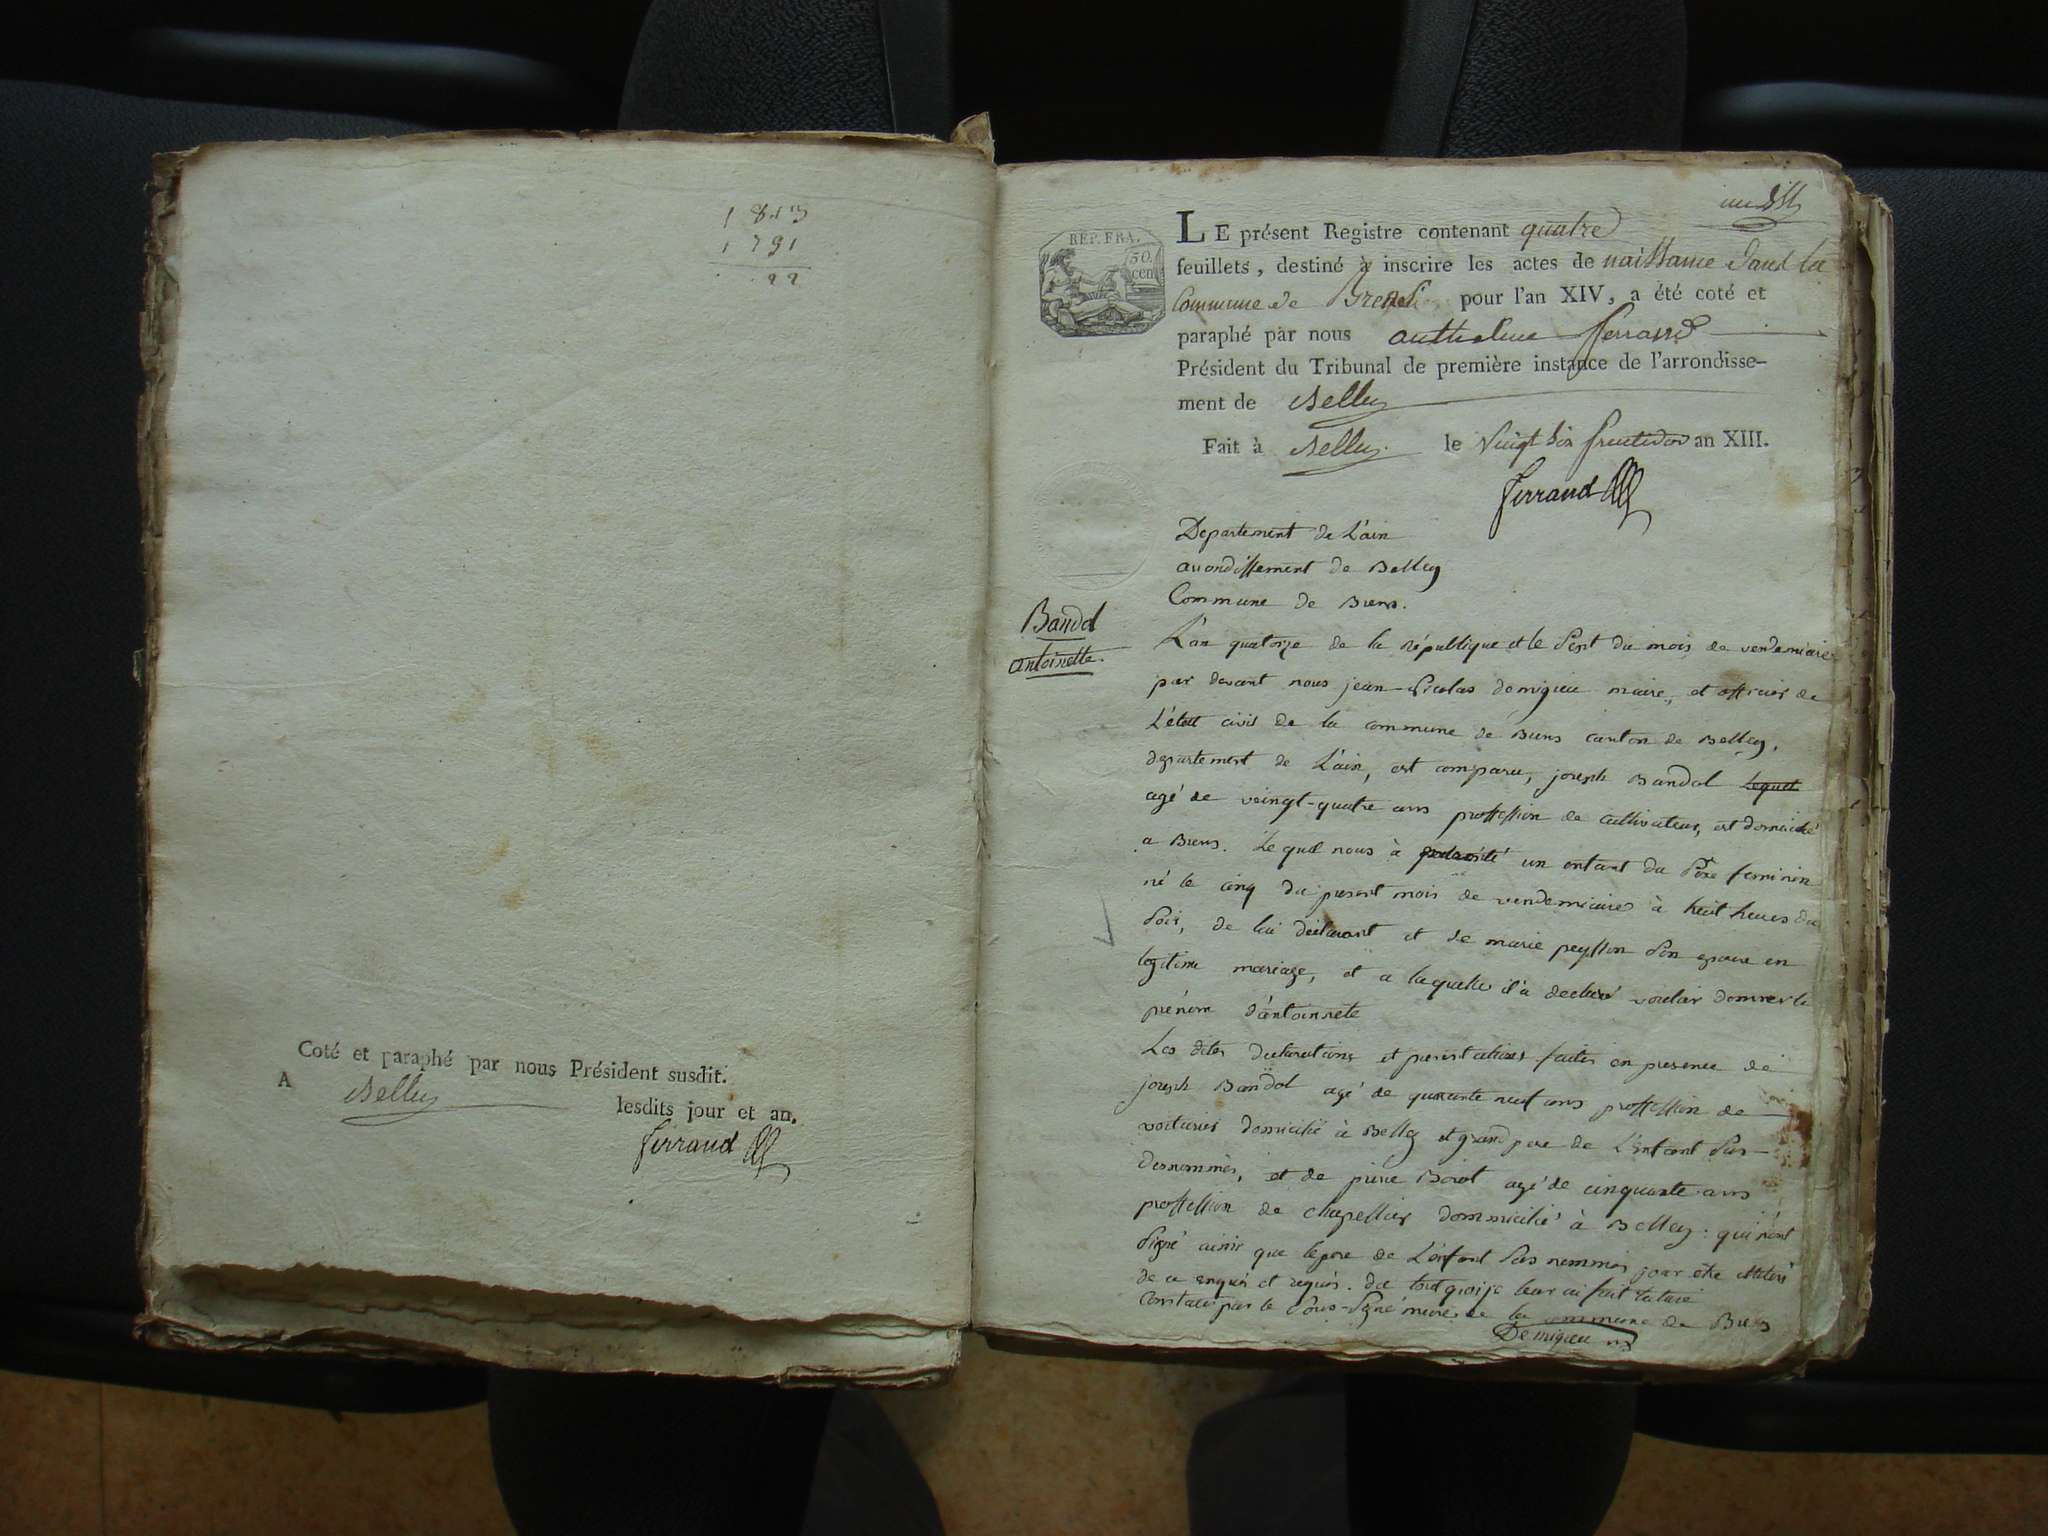 1813
1791
22
Coté et paraphé par nous Président susdit.
A Belley
lesdits jour et an.
ferrand
REP. FRA.
50 cen
LE présent Registre contenant quatre
feuillets, destiné à inscrire les actes de naissance dans la
Commune de pour l'an XIV, a été coté et
paraphé par nous anthelme ferrand
Président du Tribunal de première instance de l'arrondisse-
ment de Belley
Fait à Belley. le vingt six fructidor an XIII.
ferrand
Departement de L'ain
arrondissement de Belley
Commune de Brens.
Bandol
antoinette.
L'an quatorze de la république et le sept du mois de vendemiaire
par devant nous jean-nicolas demigieu maire, et officier de
L'état civil de la commune de Brens canton de Belley,
departement de L'ain, est comparu, joseph Bandol Lequel
agé de veingt-quatre ans profession de cultivateur, est domicilié
a Brens. Lequel nous à présenté un enfant du sexe feminin
né le cinq du present mois de vendemiaire à huit heures du
soir, de lui déclarant et de marie peysson son epouse en
legitime mariage, et a laquelle il'a declaré vouloir donner le
prénom d'antoinette
Les dites declarations et presentations faites en presence de
joseph Bandol agé de quarante neuf ans profession de
voiturier domicilié à Belley et grand pere de L'enfant sus-
denommés, et de pierre Boirot agé de cinquante ans
profession de chapellier dommicilié à Belley: qui n'ont
signé ainsi que le pere de L'enfant sus nommés pour être illiteré
de ce enquis et requis. de tout quoi je leur ai fait lecture
Constaté par le sous-signé maire de la commune de Brens
Demigieu